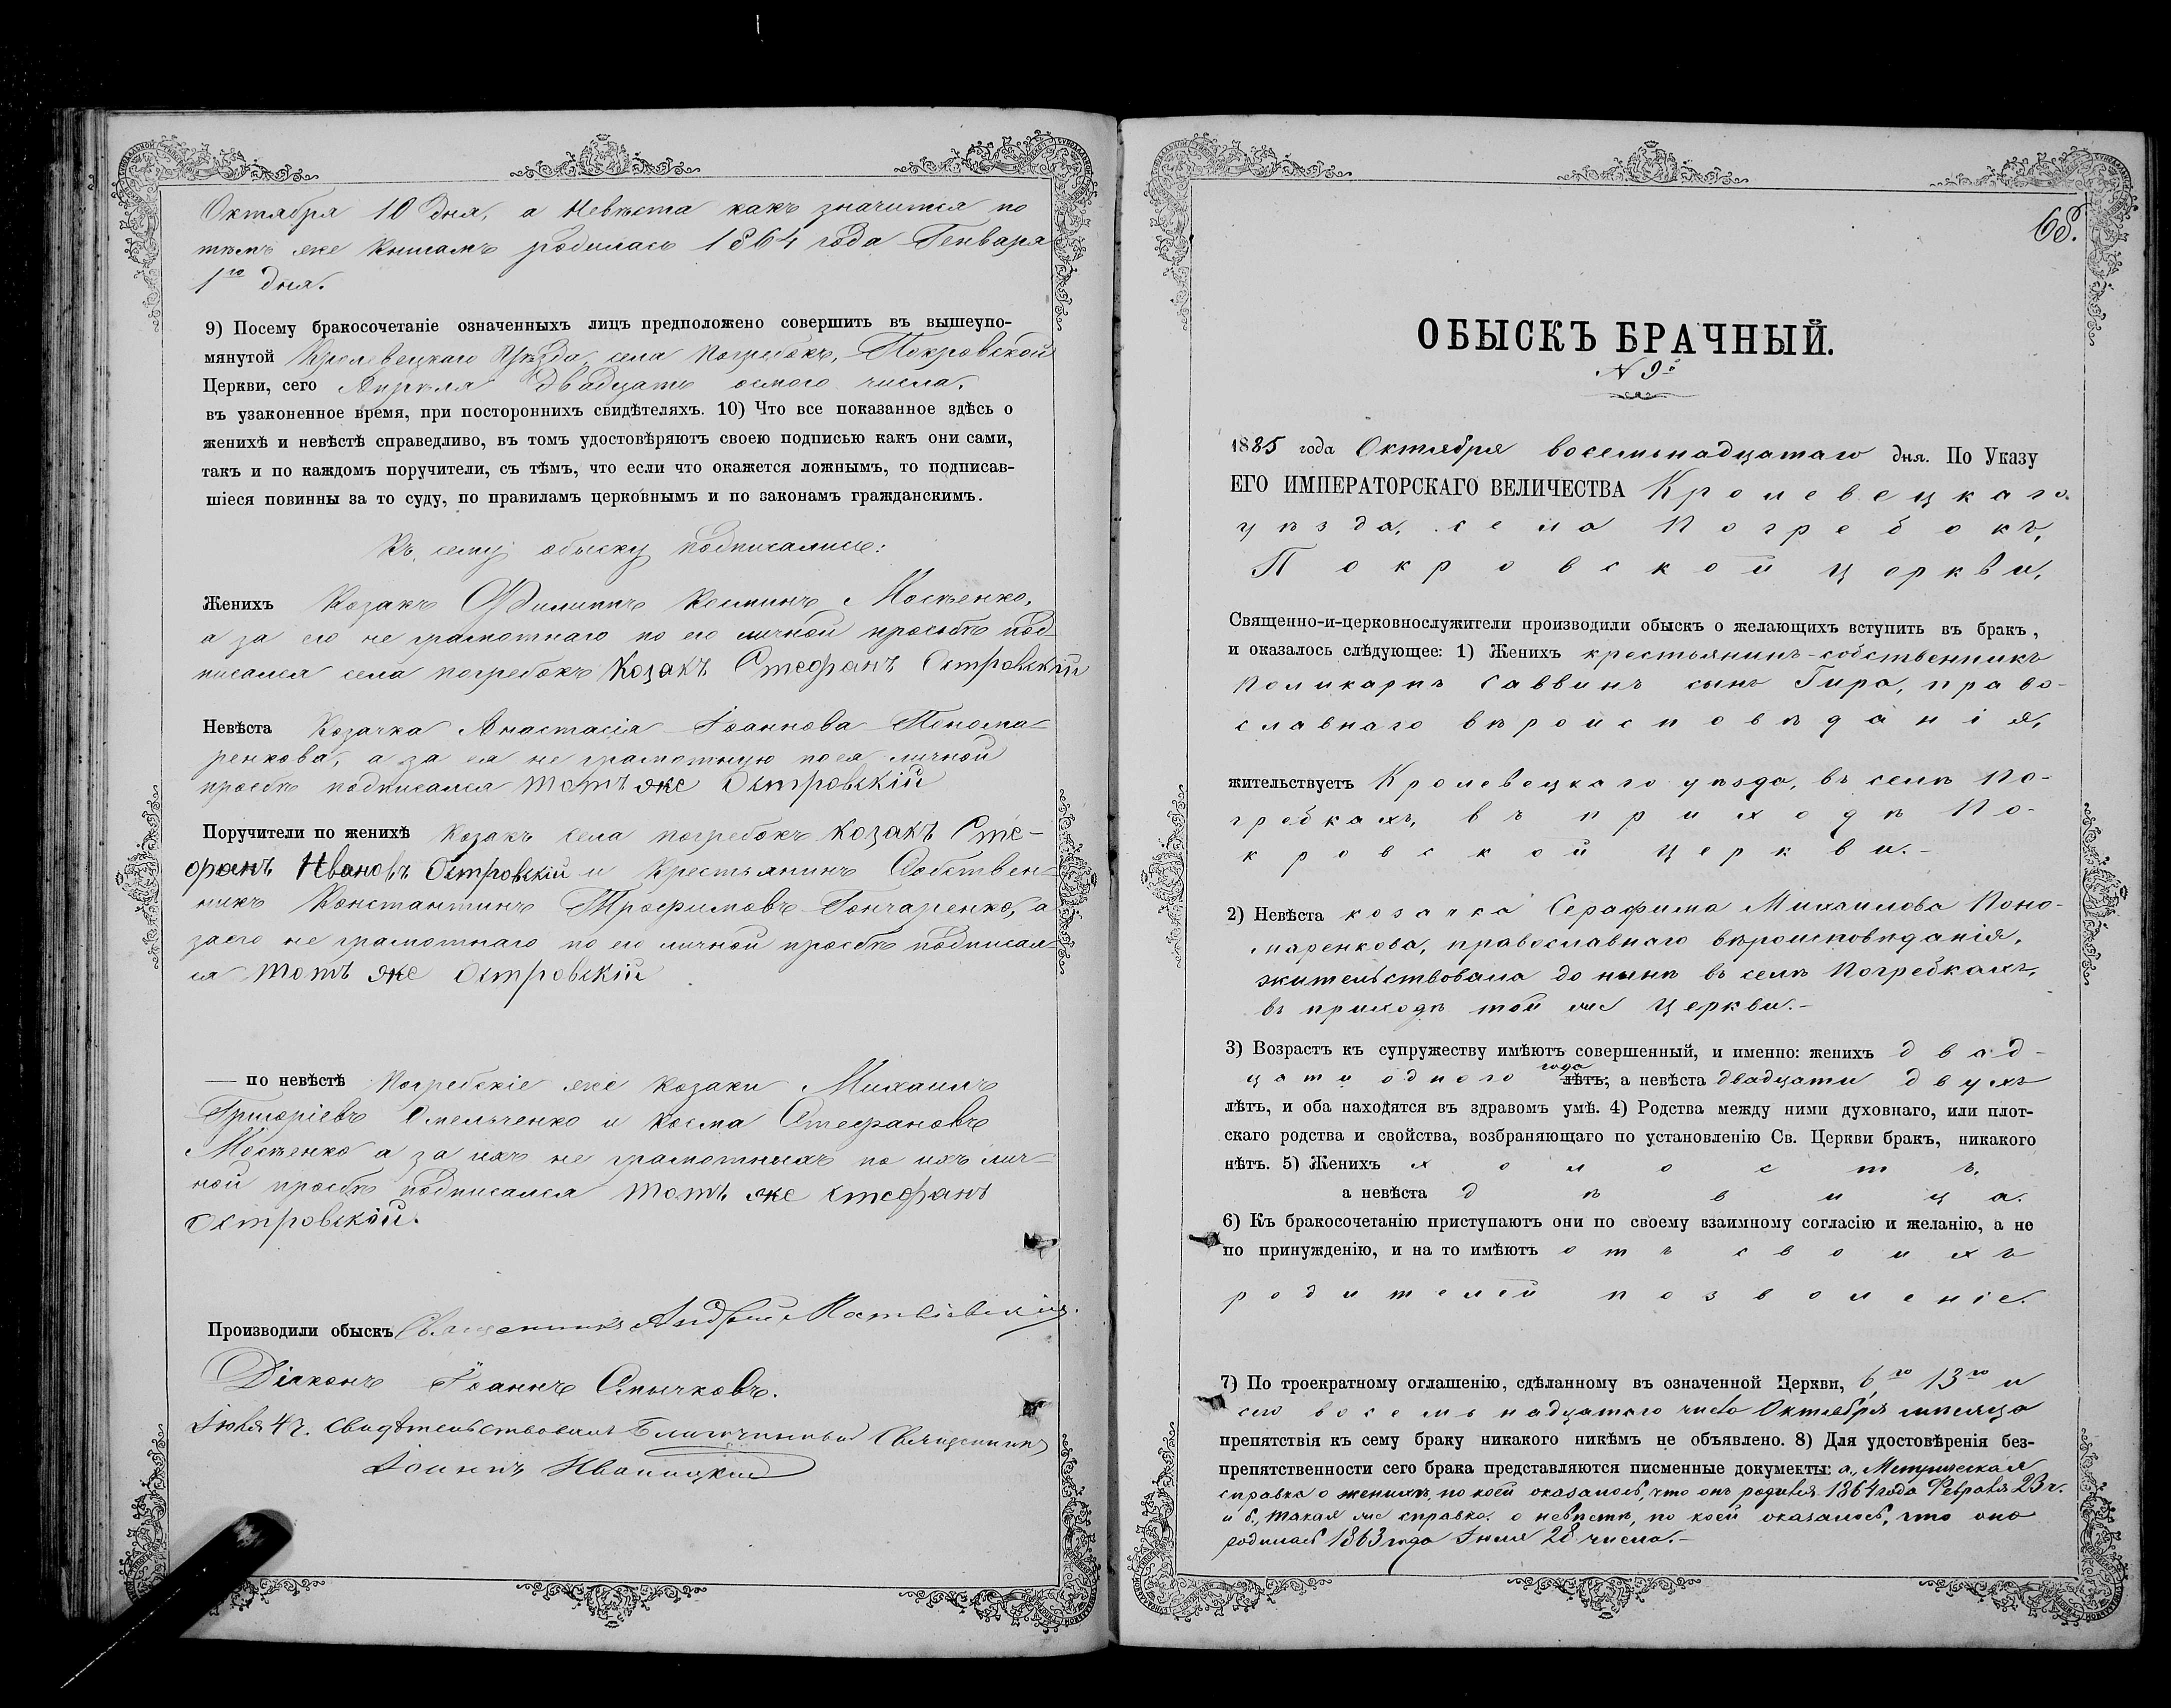 Октября 10 дня, а Невѣста какъ значится по
тѣмъ же книгамъ родилась 1864 года Генваря
1го дня.
9) Посему бракосочетаніе означенныхъ лицъ предположено совершить въ вышеупо-
мянутой Кролевецкаго Уѣзда, села Погребокъ, Покровской
Церкви, сего Апрѣля двадцать осмого числа,
въ узаконенное время, при постороннихъ свидѣтеляхъ. 10) Что все показанное здѣсь о
женихѣ и невѣстѣ справедливо, въ томъ удостовѣряютъ своею подписью какъ они сами,
такъ и по каждомъ поручители, съ тѣмъ, что если что окажется ложнымъ, то подписав-
шіеся повинны за то суду, по правиламъ церковнымъ и по законамъ гражданскимъ.
Къ сему обыску подписались:
Женихъ Козакъ Филиппъ Косминъ Мосѣенко,
а за его не грамотнаго по его личной просьбѣ под-
писался села погребокъ Козакъ Стефанъ Островскій
Невѣста Козачка Анастасія Іоаннова Понома-
ренкова, а за ея не грамотную по ея личной
просбѣ подписался тотъ же Островскій
Поручители по женихѣ Козакъ села погребокъ козакъ Сте-
фанъ Ивановъ Островскій и Крестьянинъ Собствен-
никъ Константинъ Трофимовъ Гончаренко, а
заего не грамотнаго по его личной просбѣ подписал
ся тотъ же Островскій
— по невѣстѣ Погребскіе же козаки Михаилъ
Григоріевъ Омельченко и Косма Стефановъ
Мосѣенко а за ихъ не грамотныхъ по ихъ лич-
ной просбѣ подписался тотъ же стефанъ
Островскій.
Производили обыскъ Священникъ Андрей Матвіевскій.
Діаконъ Іоаннъ Смычковъ.
Іюля 4 ч. Свидѣтельствовалъ Благочинный Священникъ
Іоаннъ Иваницкій
68.
ОБЫСКЪ БРАЧНЫЙ.
N 9й
1885 года Октября восемьнадцатаго дня. По Указу
ЕГО ИМПЕРАТОРСКАГО ВЕЛИЧЕСТВА Кролевецкаго
уѣзда, села Погребокъ,
Покровской церкви,
Священно-и-церковнослужители производили обыскъ о желающихъ вступить въ бракъ,
и оказалось слѣдующее: 1) Женихъ крестьянинъ-собственникъ
Поликарпъ Саввинъ сынъ Гира, право-
славнаго вѣроисповѣданія,
жительствуетъ Кролевецкаго уѣзда, въ селѣ По-
гребкахъ, въ приходѣ По-
кровской церкви.-
2) Невѣста козачка Серафима Михаилова Поно-
маренкова, православнаго вѣроисповѣданія,
жительствовала до нынѣ въ селѣ Погребкахъ,
въ приходѣ той же Церкви.-
3) Возрастъ къ супружеству имѣютъ совершенный, и именно: женихъ двад-
цати одного года лѣтъ; а невѣста двадцати двухъ
лѣтъ, и оба находятся въ здравомъ умѣ. 4) Родства между ними духовнаго, или плот-
скаго родства и свойства, возбраняющаго по установленію Св. Церкви бракъ, никакого
нѣтъ. 5) Женихъ холостъ,
а невѣста дѣвица.
6) Къ бракосочетанію приступаютъ они по своему взаимному согласію и желанію, а не
по принужденію, и на то имѣютъ отъ своихъ
родителей позволеніе.
7) По троекратному оглашенію, сдѣланному въ означенной Церкви, 6го, 13го и
сего восемьнадцатаго числа Октября мѣсяца
препятствія къ сему браку никакого никѣмъ не объявлено. 8) Для удостовѣренія без-
препятственности сего брака представляются писменные документы: а, Метрическая
справка о женихѣ, по коей оказалось, что онъ родился 1864 года Февраля 23 ч.
и б, такая же справка о невѣстѣ, по коей оказалось, что она
родилась 1863 года Іюля 28 числа.-